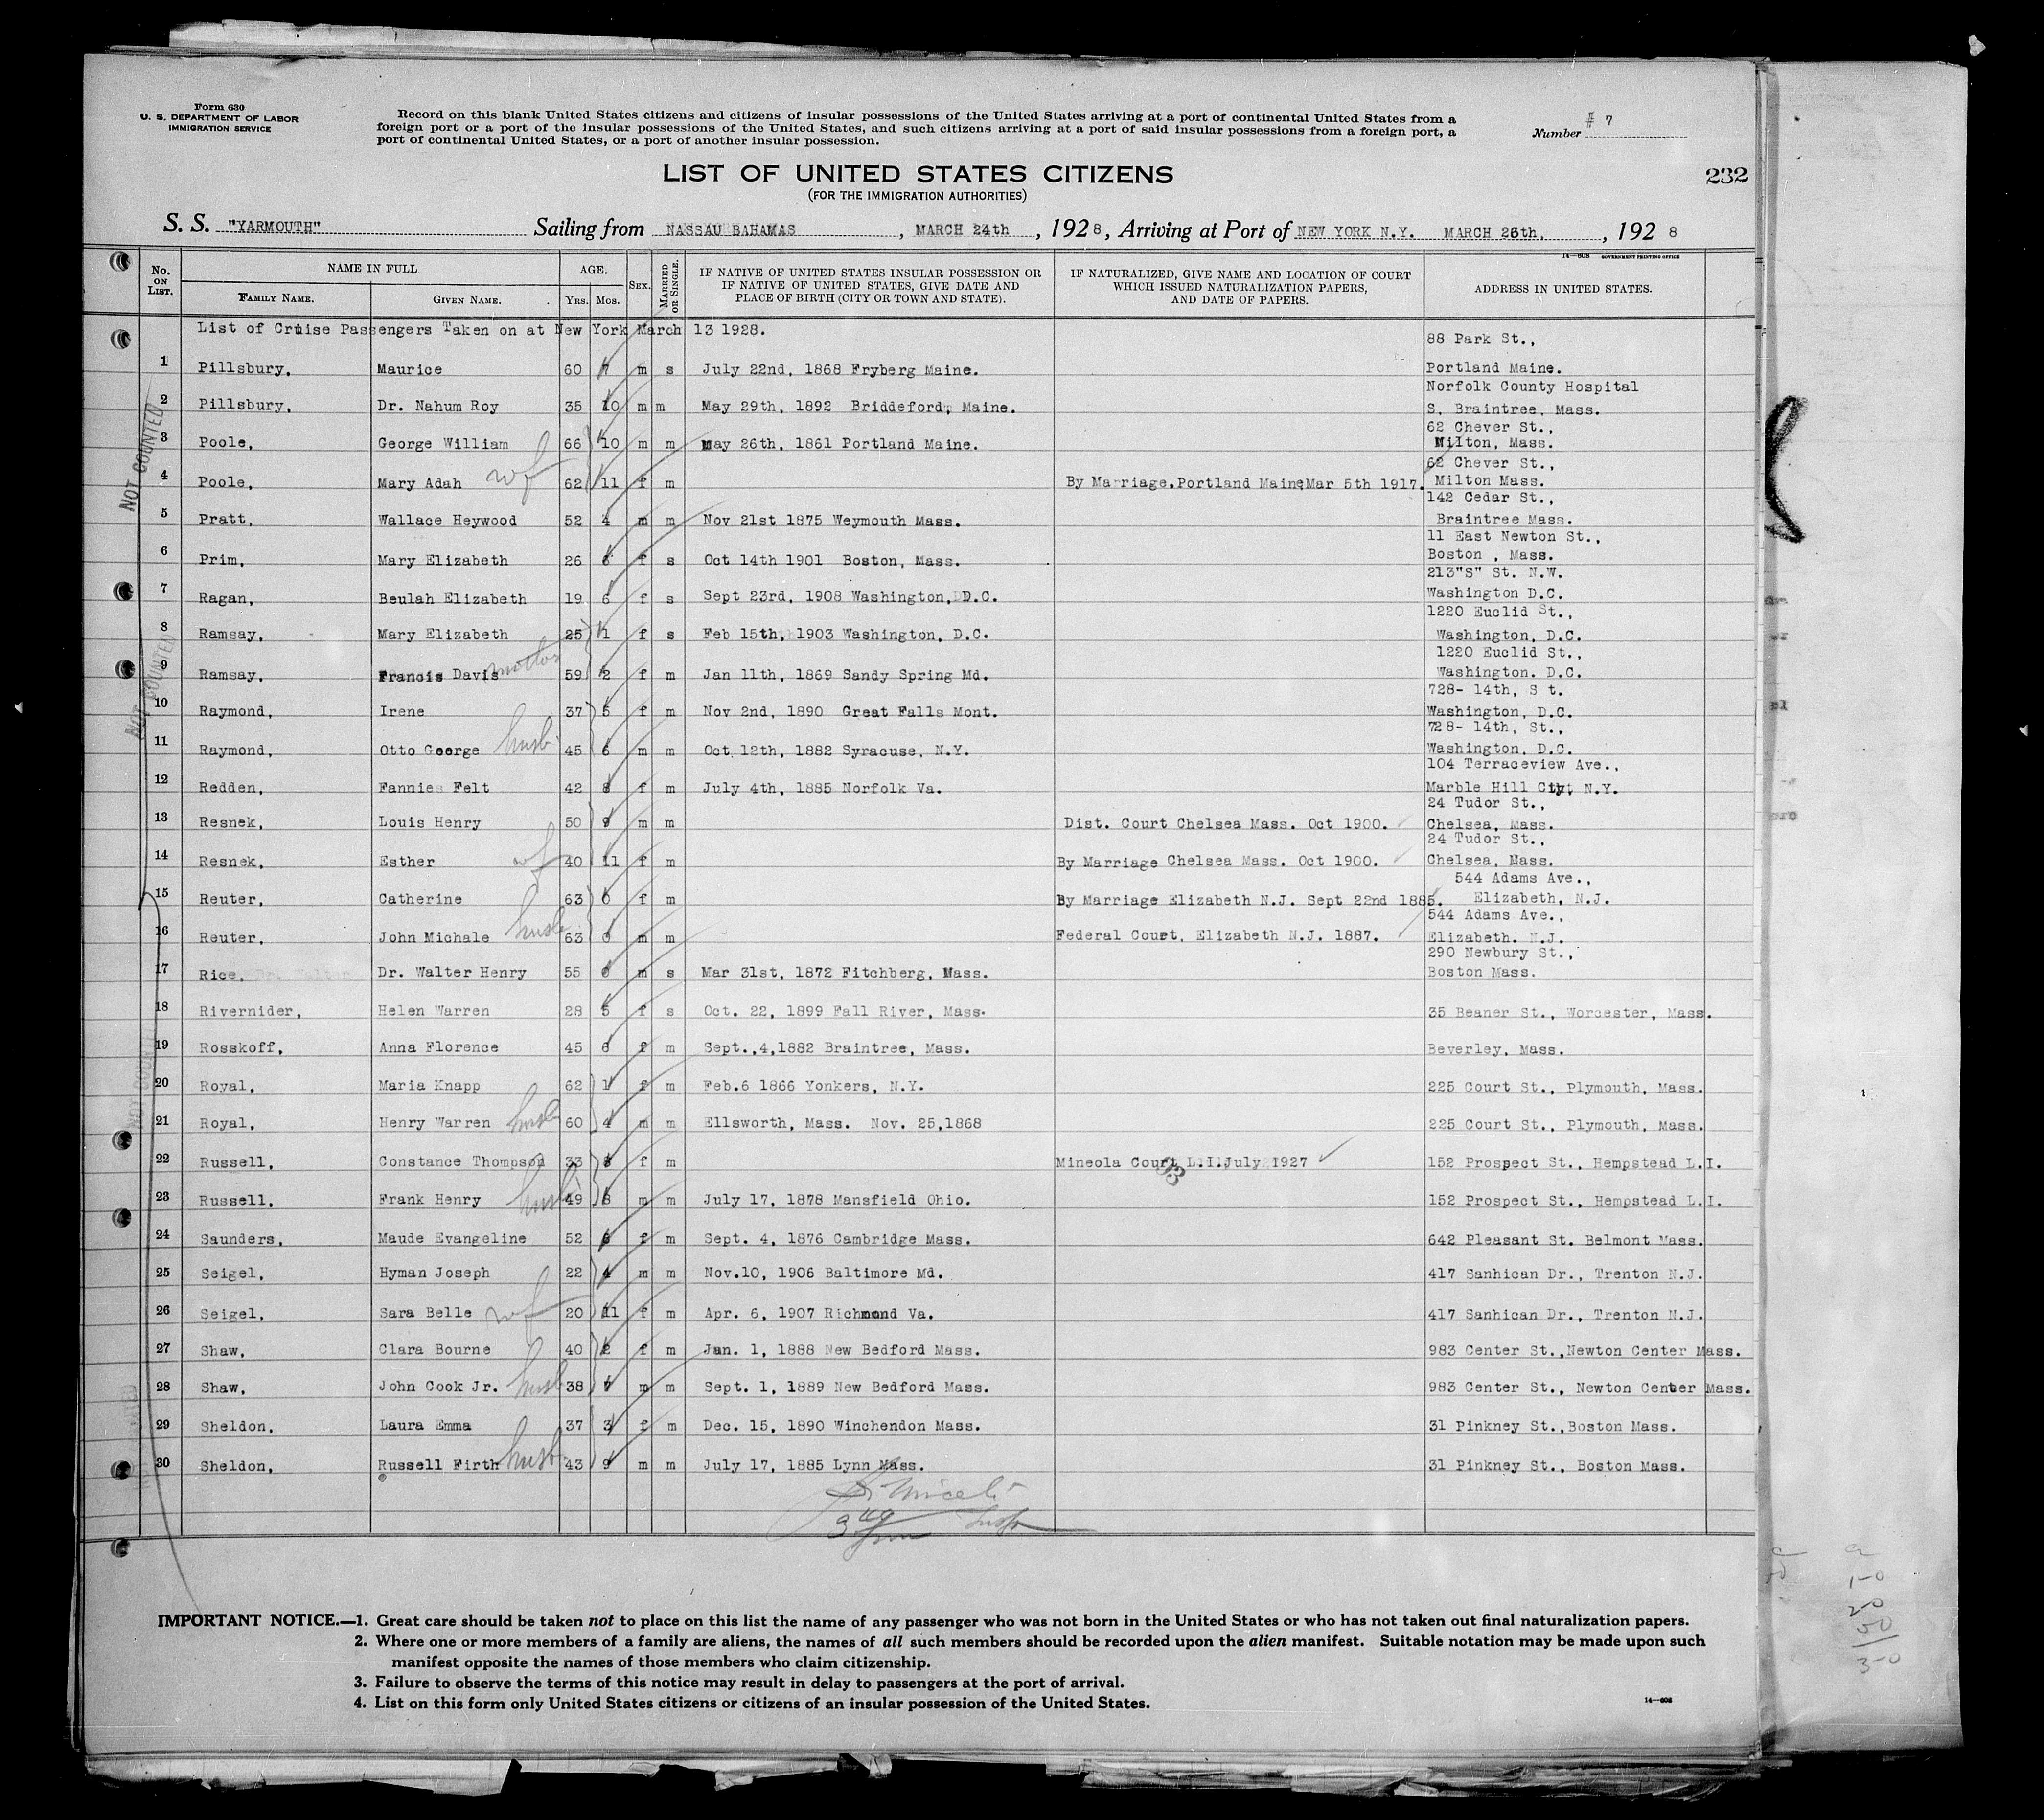 Form 630
U. S. DEPARTMENT OF LABOR
IMMIGRATION SERVICE
Record on this blank United States citizens and citizens of insular possessions of the United States arriving at a port of continental United States from a
foreign port or a port of the insular possessions of the United States, and such citizens arriving at a port of said insular possessions from a foreign port, a
port of continental United States, or a port of another insular possession.
Number # 7
LIST OF UNITED STATES CITIZENS
(FOR THE IMMIGRATION AUTHORITIES)
232
S. S. "YARMOUTH" Sailing from NASSAU BAHAMAS, MARCH 24th, 1928, Arriving at Port of NEW YORK N.Y. MARCH 26th, 1928
14—608 GOVERNMENT PRINTING OFFICE
No. ON LIST. NAME IN FULL FAMILY NAME. GIVEN NAME. AGE. Yrs. Mos. SEX. MARRIED OR SINGLE. IF NATIVE OF UNITED STATES INSULAR POSSESSION OR IF NATIVE OF UNITED STATES, GIVE DATE AND PLACE OF BIRTH (CITY OR TOWN AND STATE). IF NATURALIZED, GIVE NAME AND LOCATION OF COURT WHICH ISSUED NATURALIZATION PAPERS, AND DATE OF PAPERS. ADDRESS IN UNITED STATES.
List of Cruise Passengers Taken on at New York March 13 1928.
88 Park St.,
1 Pillsbury, Maurice 60 7 m s July 22nd, 1868 Fryberg Maine. Portland Maine.
Norfolk County Hospital
2 Pillsbury, Dr. Nahum Roy 35 10 m m May 29th, 1892 Briddeford, Maine. S. Braintree, Mass.
62 Chever St.,
3 Poole, George William 66 10 m m may 26th, 1861 Portland Maine. Milton, Mass.
62 Chever St.,
4 Poole, Mary Adah wf 62 11 f m By Marriage.Portland Maine Mar 5th 1917. Milton Mass.
142 Cedar St.,
5 Pratt, Wallace Heywood 52 4 m m Nov 21st 1875 Weymouth Mass. Braintree Mass.
11 East Newton St.,
6 Prim, Mary Elizabeth 26 6 f s Oct 14th 1901 Boston, Mass. Boston , Mass.
213"S" St. N.W.
7 Ragan, Beulah Elizabeth 19 6 f s Sept 23rd, 1908 Washington, D.C. Washington D.C.
1220 Euclid St.,
8 Ramsay, Mary Elizabeth 25 1 f s Feb 15th, 1903 Washington, D.C. Washington, D.C.
1220 Euclid St.,
9 Ramsay, Francis Davis mother 59 2 f m Jan 11th, 1869 Sandy Spring Md. Washington. D.C.
728- 14th, S t.
10 Raymond, Irene 37 5 f m Nov 2nd, 1890 Great Falls Mont. Washington, D.C.
728- 14th, St.,
11 Raymond, Otto George husb. 45 6 m m Oct 12th, 1882 Syracuse, N.Y. Washington, D.C.
104 Terraceview Ave.,
12 Redden, Fannie Felt 42 8 f m July 4th, 1885 Norfolk Va. Marble Hill City N.Y.
24 Tudor St.,
13 Resnek, Louis Henry 50 9 m m Dist. Court Chelsea Mass. Oct 1900. Chelsea, Mass.
24 Tudor St.,
14 Resnek, Esther wf 40 11 f m By Marriage Chelsea Mass. Oct 1900. Chelsea, Mass.
544 Adams Ave.,
15 Reuter, Catherine 63 0 f m By Marriage Elizabeth N.J. Sept 22nd 1885. Elizabeth, N.J.
544 Adams Ave.,
16 Reuter, John Michale husb 63 0 m m Federal Court, Elizabeth N.J. 1887. Elizabeth. N.J.
290 Newbury St.,
17 Rice, Dr. Walter Henry 55 0 m s Mar 31st, 1872 Fitchberg, Mass. Boston Mass.
18 Rivernider, Helen Warren 28 5 f s Oct. 22, 1899 Fall River, Mass. 35 Beaner St., Worcester, Mass.
19 Rosskoff, Anna Florence 45 6 f m Sept.,4,1882 Braintree, Mass. Beverley, Mass.
20 Royal, Maria Knapp 62 1 f m Feb.6 1866 Yonkers, N.Y. 225 Court St., Plymouth, Mass.
21 Royal, Henry Warren husb 60 4 m m Ellsworth, Mass. Nov. 25,1868 225 Court St., Plymouth, Mass.
22 Russell, Constance Thompson 33 8 f m Mineola Court L.I.July 1927 152 Prospect St., Hempstead L.I.
23 Russell, Frank Henry husb 49 8 m m July 17, 1878 Mansfield Ohio. 152 Prospect St., Hempstead L.I.
24 Saunders, Maude Evangeline 52 6 f m Sept. 4, 1876 Cambridge Mass. 642 Pleasant St. Belmont Mass.
25 Seigel, Hyman Joseph 22 4 m m Nov.10, 1906 Baltimore Md. 417 Sanhican Dr., Trenton N.J.
26 Seigel, Sara Belle wf 20 11 f m Apr. 6, 1907 Richmond Va. 417 Sanhican Dr., Trenton N.J.
27 Shaw, Clara Bourne 40 2 f m Jan. 1, 1888 New Bedford Mass. 983 Center St.,Newton Center Mass.
28 Shaw, John Cook Jr. husb 38 7 m m Sept. 1, 1889 New Bedford Mass. 983 Center St., Newton Center Mass.
29 Sheldon, Laura Emma 37 3 f m Dec. 15, 1890 Winchendon Mass. 31 Pinkney St.,Boston Mass.
30 Sheldon, Russell Firth husb. 43 9 m m July 17, 1885 Lynn Mass. 31 Pinkney St., Boston Mass.
NOT COUNTED
NOT COUNTED
NOT COUNTED
IMPORTANT NOTICE.—1. Great care should be taken not to place on this list the name of any passenger who was not born in the United States or who has not taken out final naturalization papers.
2. Where one or more members of a family are aliens, the names of all such members should be recorded upon the alien manifest. Suitable notation may be made upon such
manifest opposite the names of those members who claim citizenship.
3. Failure to observe the terms of this notice may result in delay to passengers at the port of arrival.
4. List on this form only United States citizens or citizens of an insular possession of the United States.
14—608